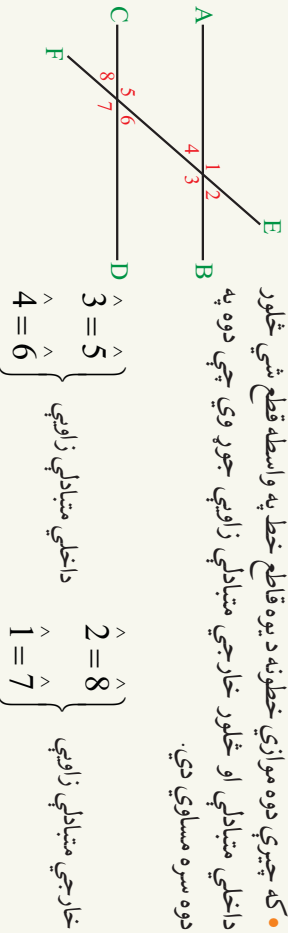 • که چیرې دوه موازي خطونه د یوه قاطع خط په واسطه قطع شي څلور
داخلي متبادلې او څلور خارجي متبادلې زاویې جوړوي چې دوه په
دوه سره مساوي دي.
A B
C D
E
F
1 2 3 4
5 6 7 8
3̂ = 5̂
4̂ = 6̂ } داخلي متبادلې زاویې
2̂ = 8̂
1̂ = 7̂ } خارجي متبادلې زاویې